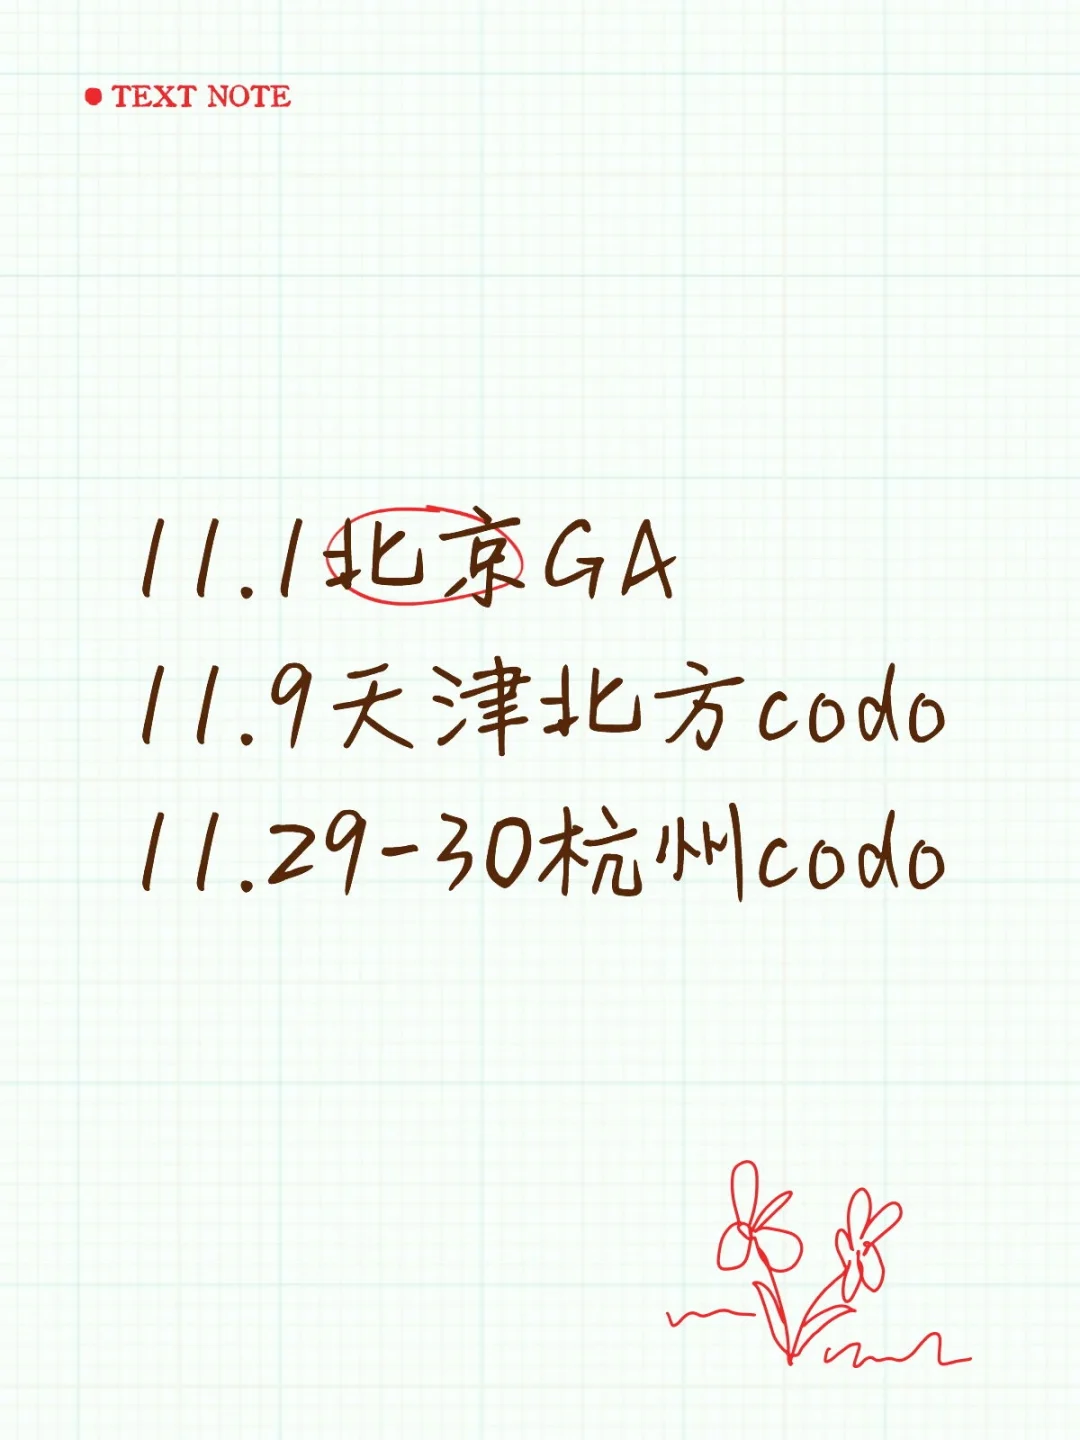 TEXT NOTE
11.1北京GA
11.9天津北方codo
11.29-30杭州codo